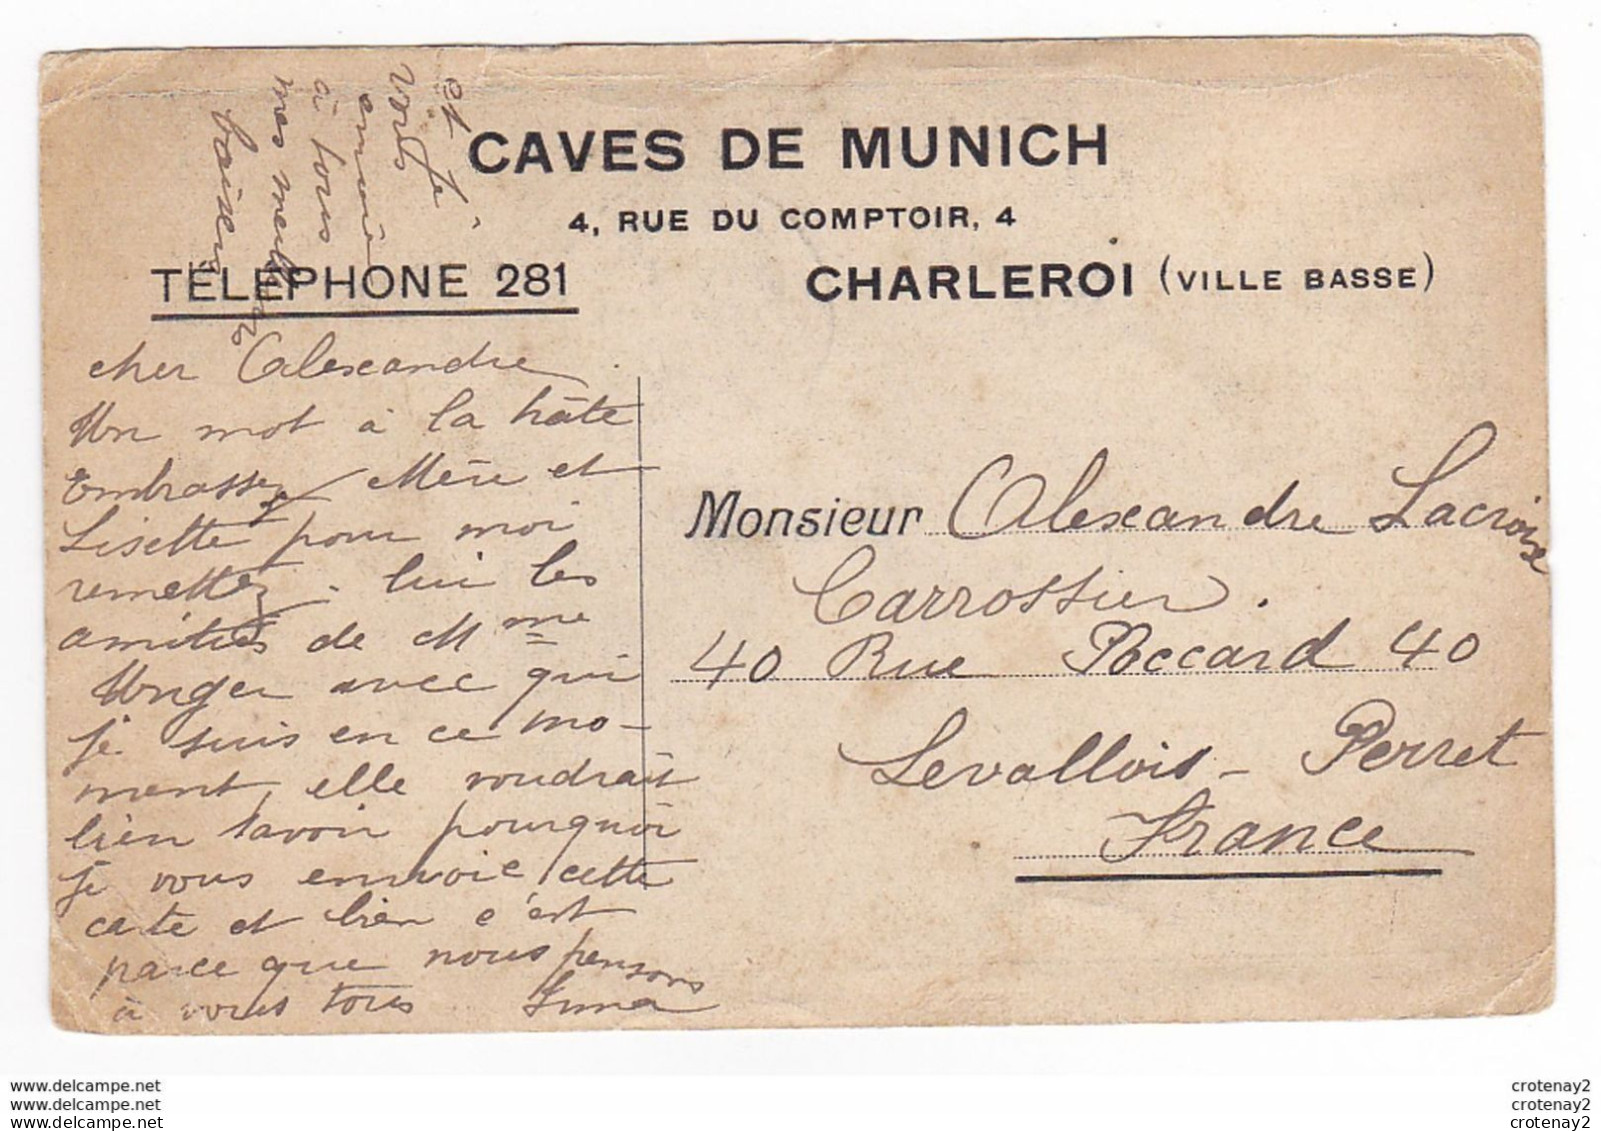 CAVES DE MUNICH
4, RUE DU COMPTOIR, 4
TÉLÉPHONE 281
CHARLEROI (VILLE BASSE)
cher Alexandre
Un mot à la hâte
Embrassez Mère et
Lisette pour moi
remettez-lui les
amitiés de Mme
Unger avec qui
je suis en ce mo-
ment, elle voudrait
bien savoir pourquoi
je vous envoie cette
carte et bien c'est
parce que nous pensons
à vous tous
et je
vous
envoie
à tous
mes meilleurs
baisers
Monsieur Alexandre Lacroix
Carrossier.
40 Rue Poccard 40
Levallois-Perret
France
www.delcampe.net
www.delcampe.net
www.delcampe.net
crotenay2
crotenay2
crotenay2